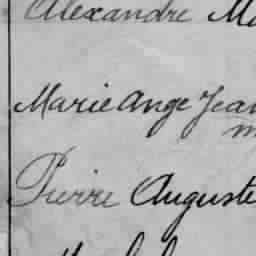 Alexandre Ma
Marie Ange Jean
m
Pierre Auguste